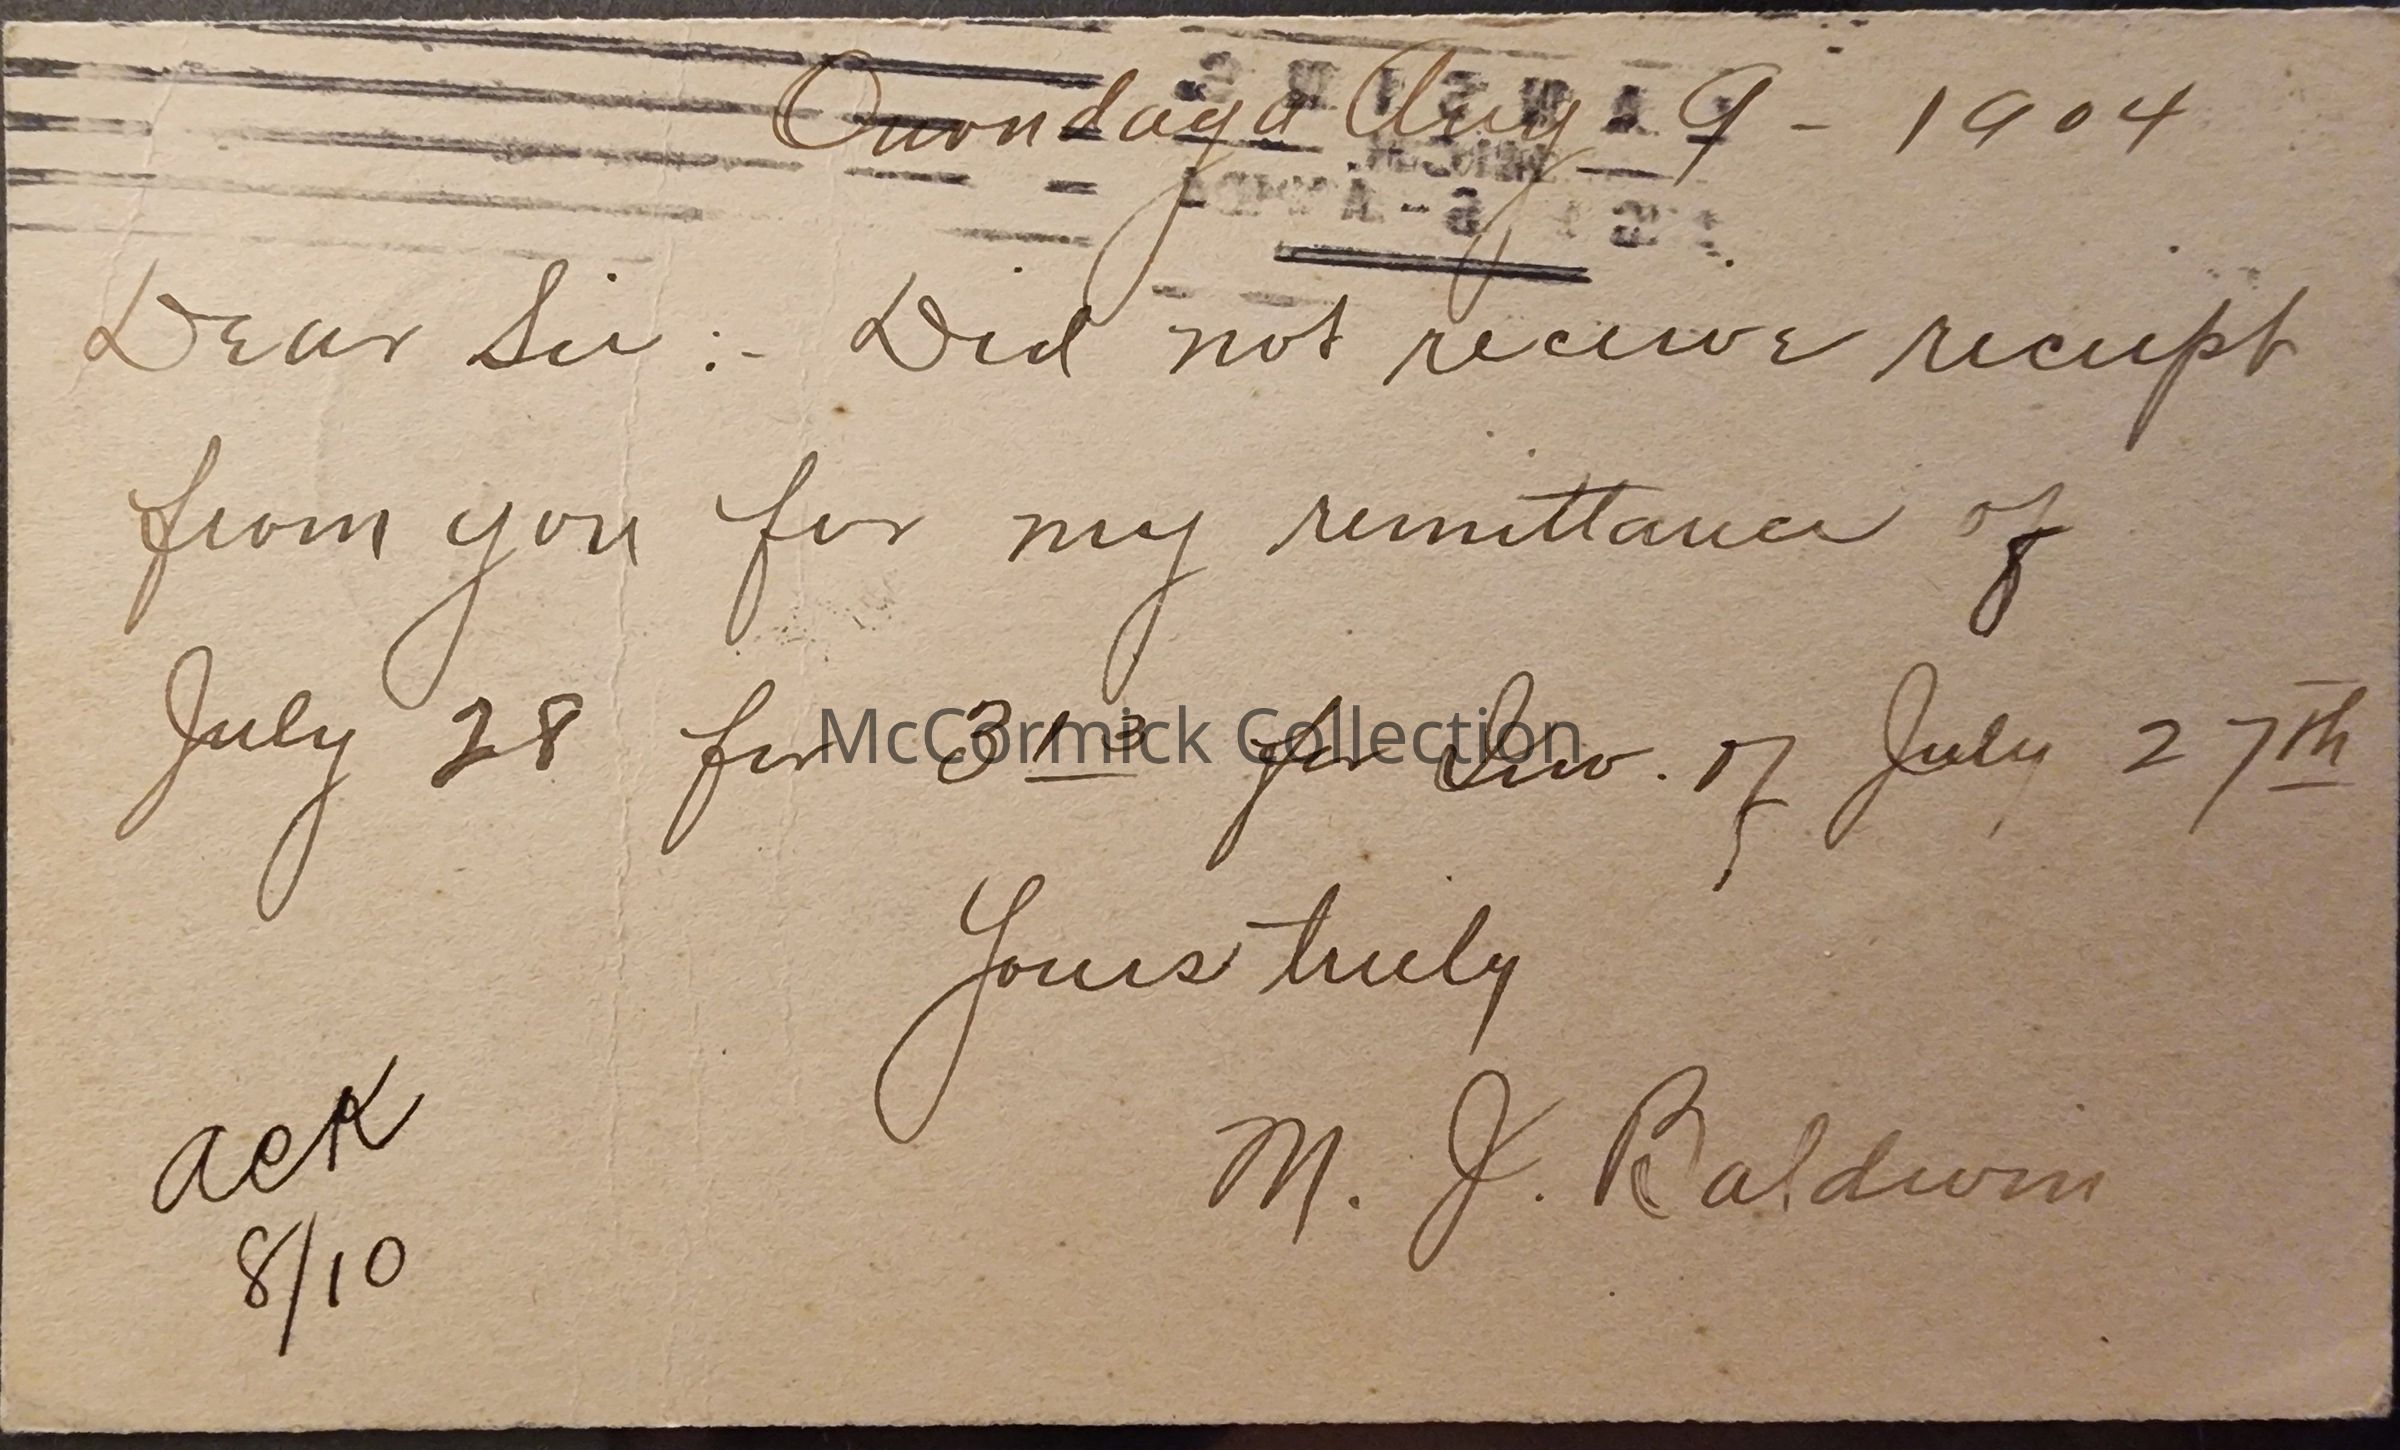 Onondaga Aug 9 - 1904
Dear Sir :- Did not receive reciept
from you for my remittance of
July 28 for 3 13 for Inv. of July 27th
McCormick Collection
Yours truly
M. J. Baldwin
ack
8/10